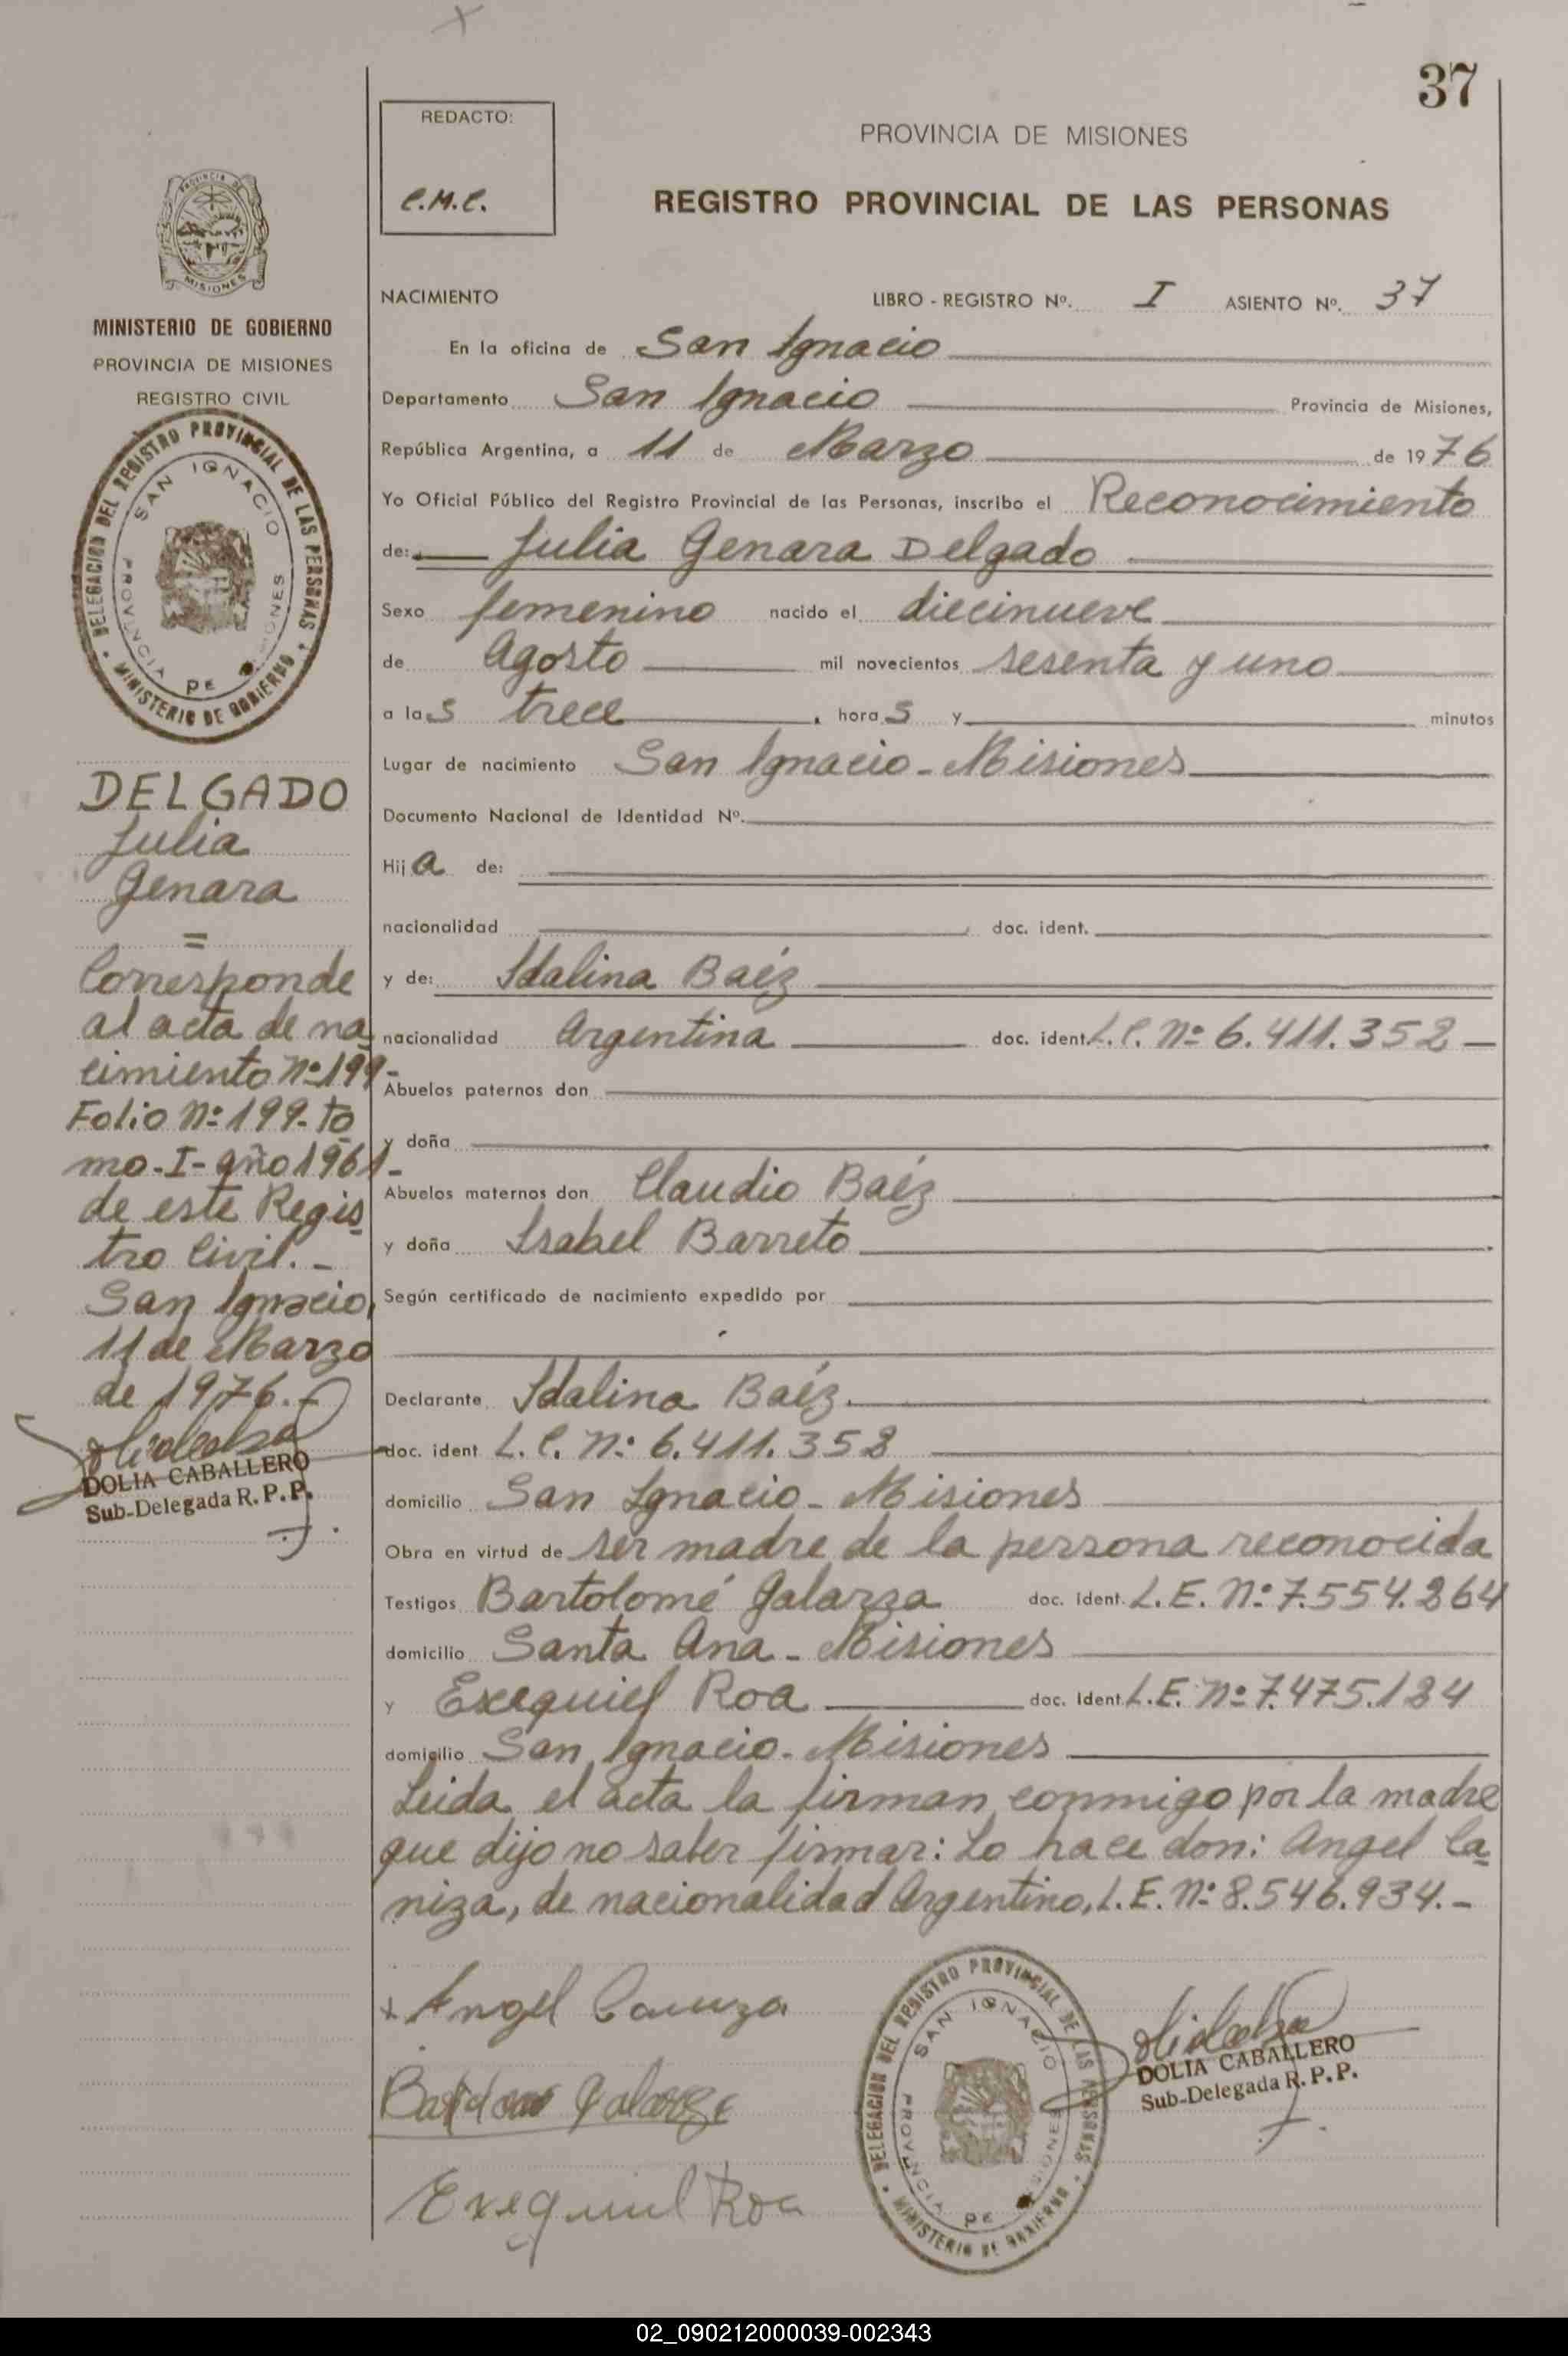 37
REDACTO:
C.M.C.
PROVINCIA DE MISIONES
REGISTRO PROVINCIAL DE LAS PERSONAS
NACIMIENTO LIBRO - REGISTRO Nº. I ASIENTO Nº. 37
En la oficina de San Ignacio
Departamento San Ignacio Provincia de Misiones,
República Argentina, a 11 de Marzo de 1976
Yo Oficial Público del Registro Provincial de las Personas, inscribo el Reconocimiento
de: Julia Genara Delgado
Sexo femenino nacido el diecinueve
de Agosto mil novecientos sesenta y uno
a las trece, horas y minutos
Lugar de nacimiento San Ignacio - Misiones
Documento Nacional de Identidad Nº.
Hija de:
nacionalidad doc. ident.
y de: Idalina Baéz
nacionalidad Argentina doc. ident. L.C. Nº 6.411.352 —
Abuelos paternos don
y doña
Abuelos maternos don Claudio Baéz
y doña Isabel Barreto
Según certificado de nacimiento expedido por
Declarante Idalina Baéz.
doc. ident L.C. Nº 6.411.352
domicilio San Ignacio - Misiones
Obra en virtud de ser madre de la persona reconocida
Testigos Bartolomé Galarza doc. ident. L.E. Nº 7.554.264
domicilio Santa Ana - Misiones
y Exequiel Roa doc. ident. L.E. Nº 7.475.124
domicilio San Ignacio - Misiones
Leida el acta la firman conmigo por la madre
que dijo no saber firmar: Lo hace don: Angel Ca-
niza, de nacionalidad Argentino, L.E. Nº 8.546.934.-
x Angel Caniza
Galarza
Exequiel Roa
DELEGACION DEL REGISTRO PROVINCIAL DE LAS PERSONAS
MINISTERIO DE GOBIERNO
SAN IGNACIO
PROVINCIA DE MISIONES
DOLIA CABALLERO
Sub-Delegada R.P.P.
PROVINCIA DE
MISIONES
MINISTERIO DE GOBIERNO
PROVINCIA DE MISIONES
REGISTRO CIVIL
DELEGACION DEL REGISTRO PROVINCIAL DE LAS PERSONAS
MINISTERIO DE GOBIERNO
SAN IGNACIO
PROVINCIA DE MISIONES
DELGADO
Julia
Genara
=
Corresponde
al acta de na-
cimiento Nº 199-
Folio Nº 199- To-
mo - I - año 1961-
de este Regis-
tro Civil. -
San Ignacio,
11 de Marzo
de 1976.-
DOLIA CABALLERO
Sub-Delegada R.P.P.
02_090212000039-002343